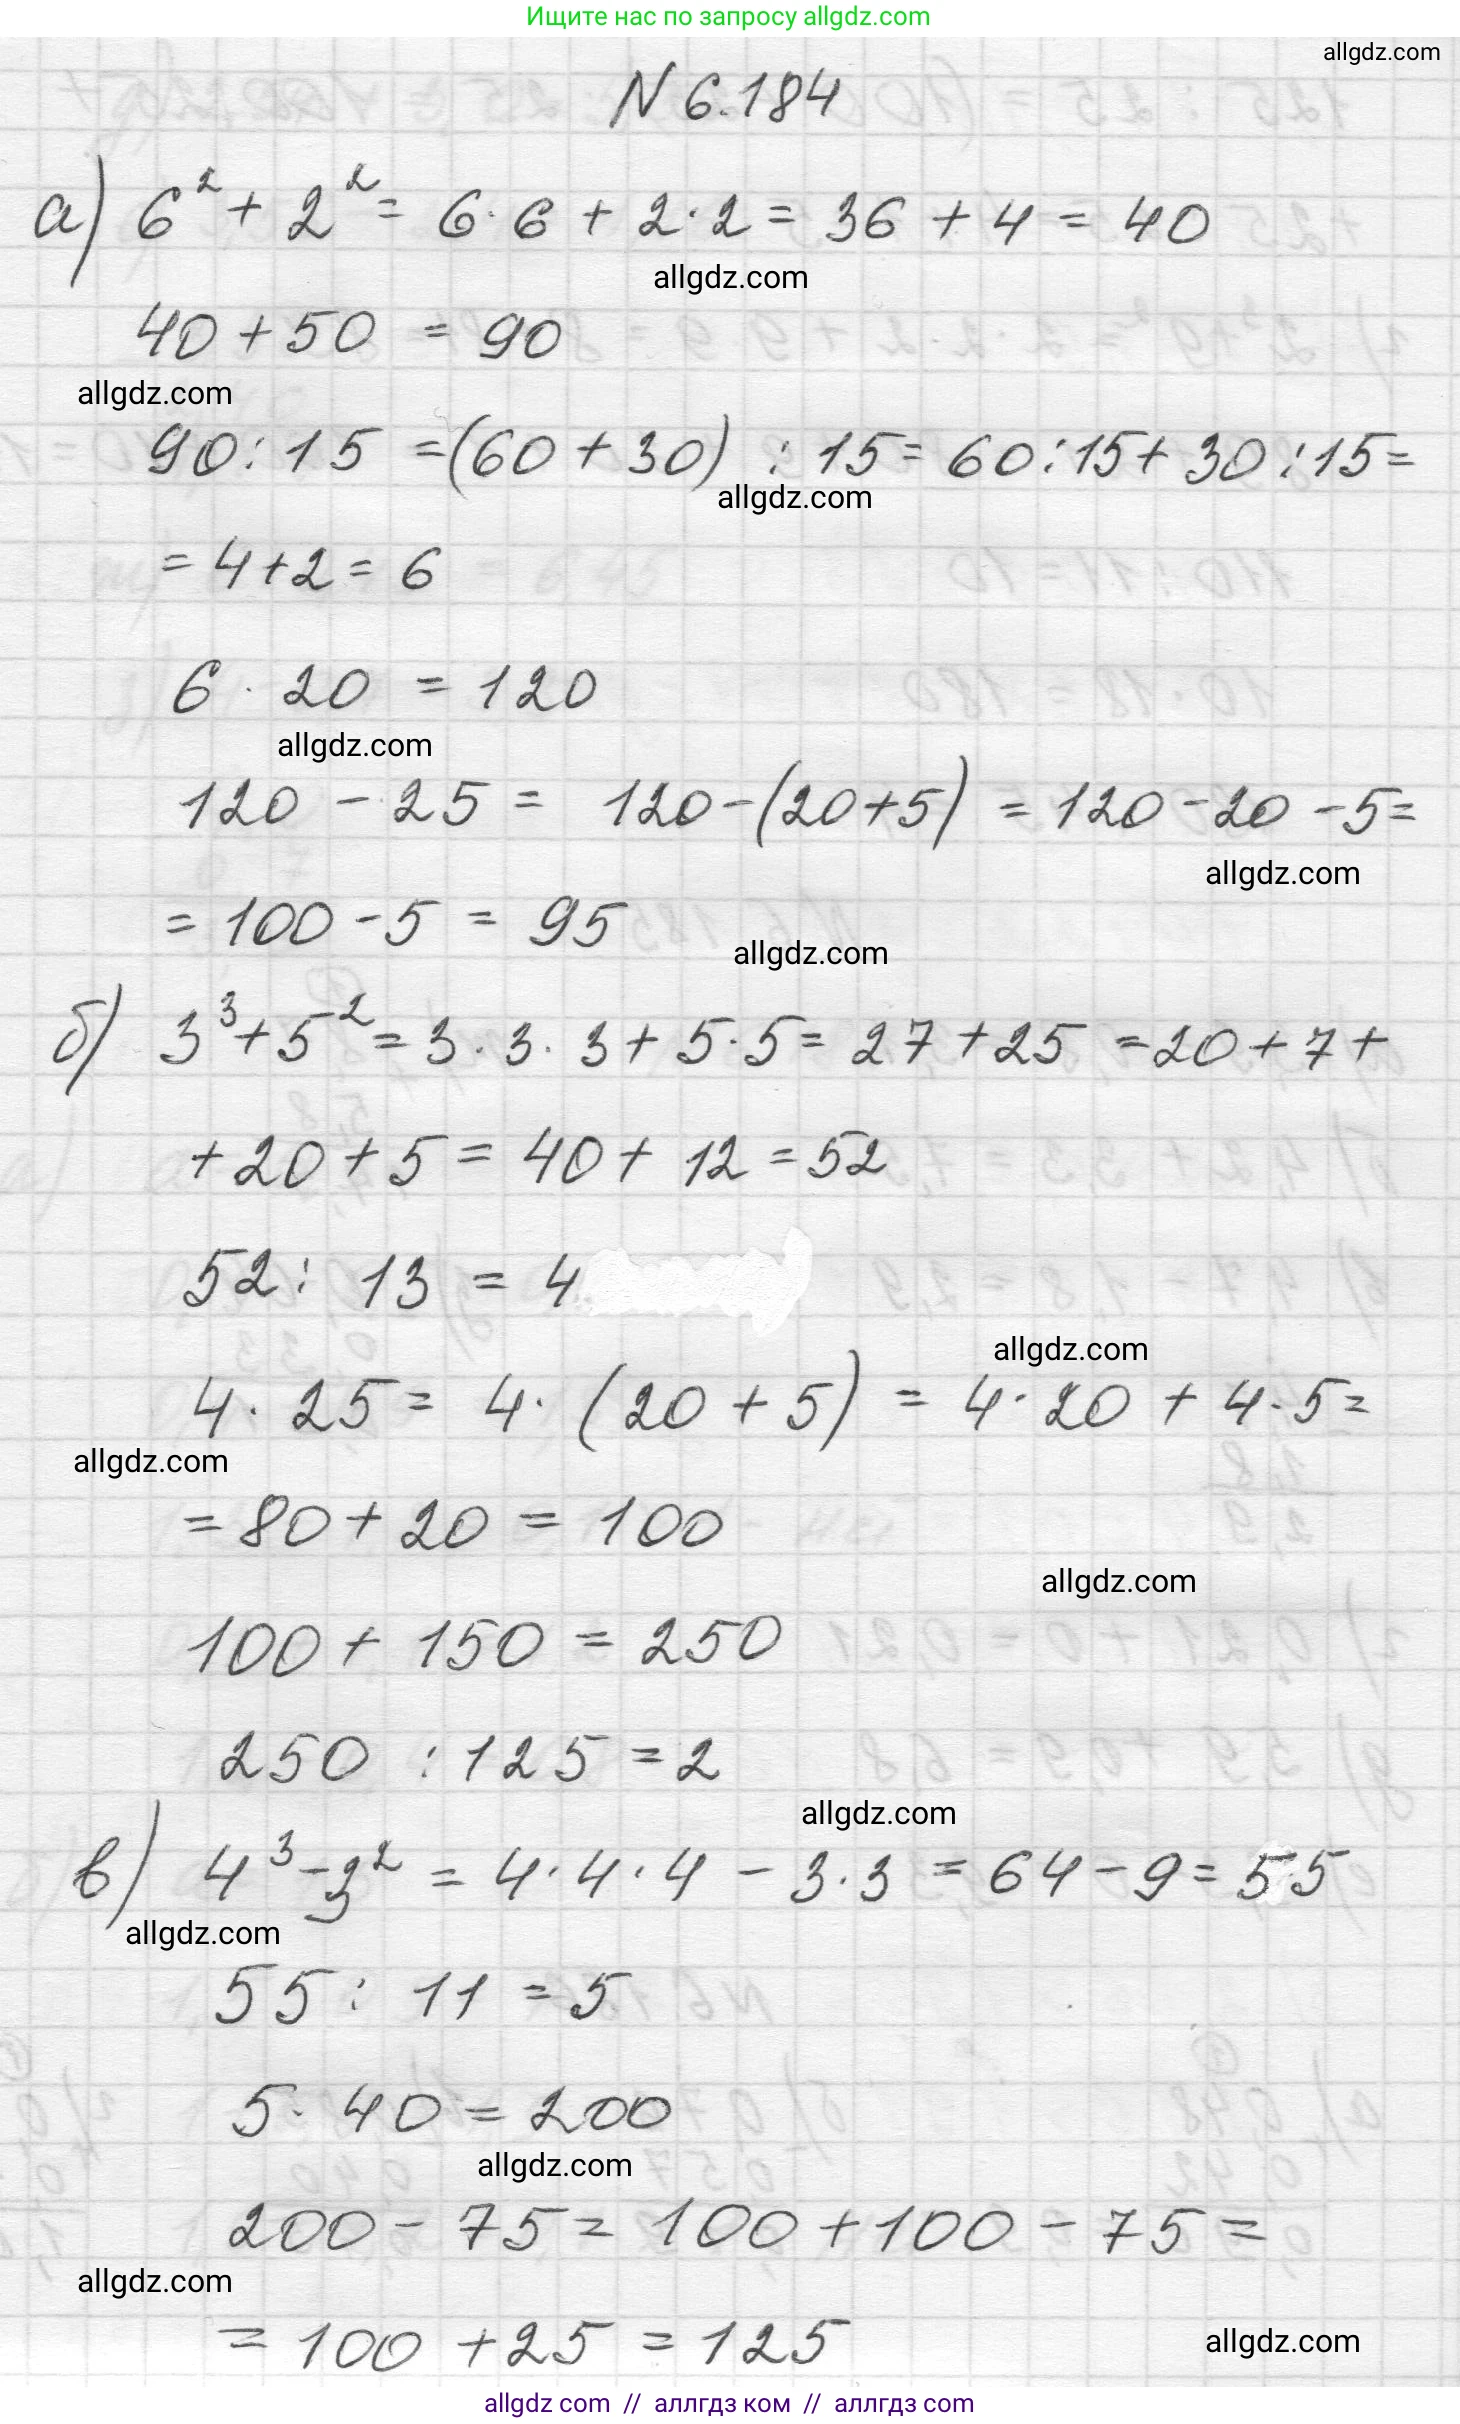 Ищите нас по запросу allgdz.com
allgdz.com
N 6.184
а) 6² + 2² = 6·6 + 2·2 = 36 + 4 = 40
allgdz.com
40 + 50 = 90
allgdz.com
90 : 15 = (60 + 30) : 15 = 60 : 15 + 30 : 15 =
allgdz.com
= 4 + 2 = 6
6 · 20 = 120
allgdz.com
120 - 25 = 120 - (20 + 5) = 120 - 20 - 5 =
allgdz.com
= 100 - 5 = 95
allgdz.com
б) 3³ + 5² = 3 · 3 · 3 + 5 · 5 = 27 + 25 = 20 + 7 +
+ 20 + 5 = 40 + 12 = 52
52 : 13 = 4
allgdz.com
4 · 25 = 4 · (20 + 5) = 4 · 20 + 4 · 5 =
allgdz.com
= 80 + 20 = 100
allgdz.com
100 + 150 = 250
250 : 125 = 2
allgdz.com
в) 4³ - 3² = 4 · 4 · 4 - 3 · 3 = 64 - 9 = 55
allgdz.com
55 : 11 = 5
5 · 40 = 200
allgdz.com
200 - 75 = 100 + 100 - 75 =
allgdz.com
= 100 + 25 = 125
allgdz.com
allgdz com // аллгдз ком // аллгдз com